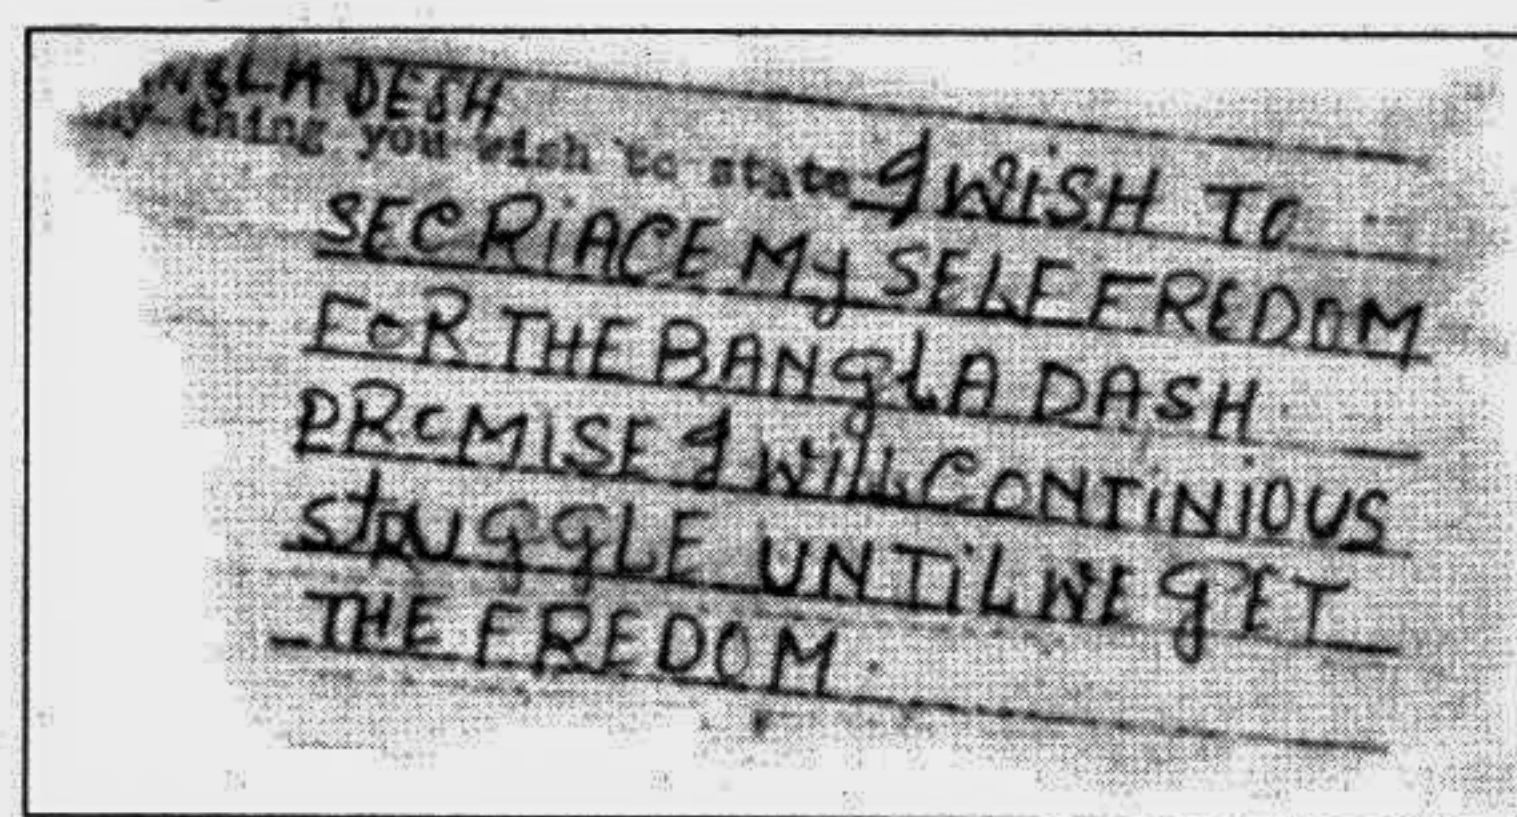 NGLA DESH
ny thing you wish to state I WISH TO
SECRIACE My SELF FREDOM
FOR THE BANGLA DASH
PROMISE I WILL CONTINIOUS
STRUGGLE UNTIL WE GET
THE FREDOM.